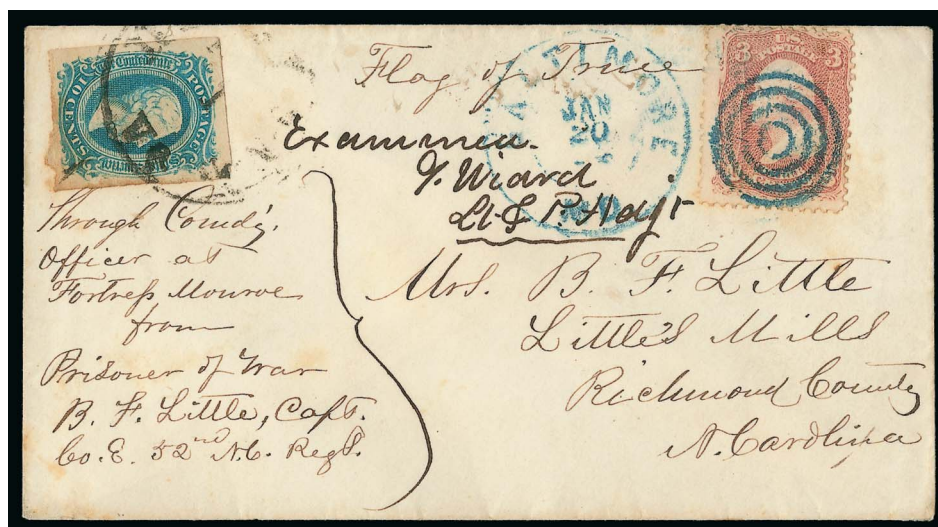 Flag of Truce
BALTIMORE
JAN
20
Examined.
J. Wiard
Lt & P. Adjt
Through Comdg.
Officer at
Fortress Monroe
from
Prisoner of War
B. F. Little, Capt.
Co. E. 52nd N.C. Regt.
Mrs. B. F. Little
Little's Mills
Richmond County
N. Carolina
The Confederate
POSTAGE
TEN CENTS
VA
3 U.S. 3
POSTAGE